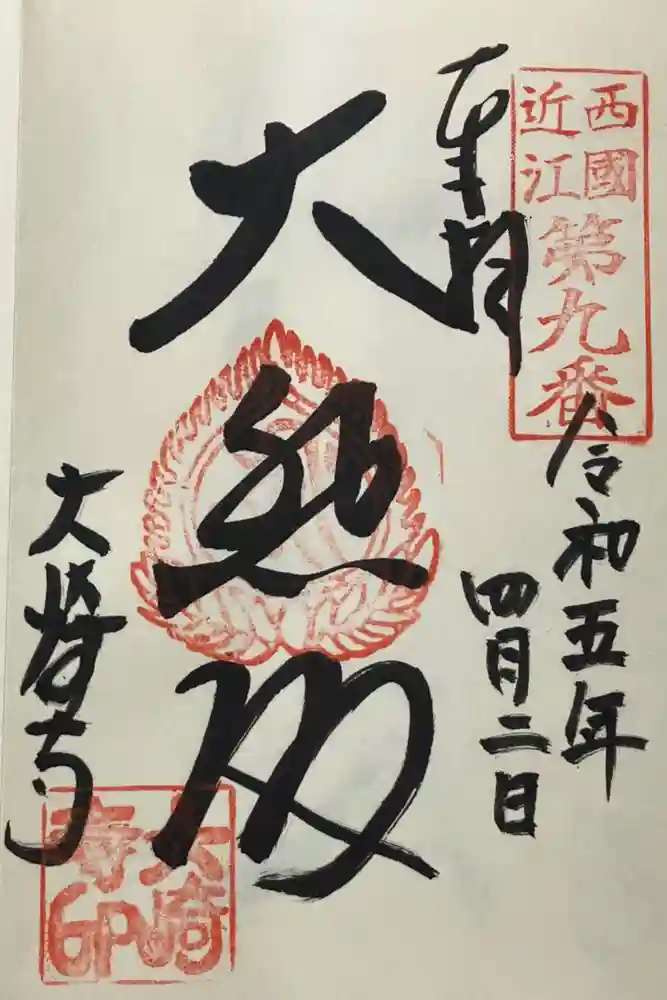 西國
近江
第九番
奉拝
令和五年
四月二日
大悲殿
大崎寺
大崎
寺印